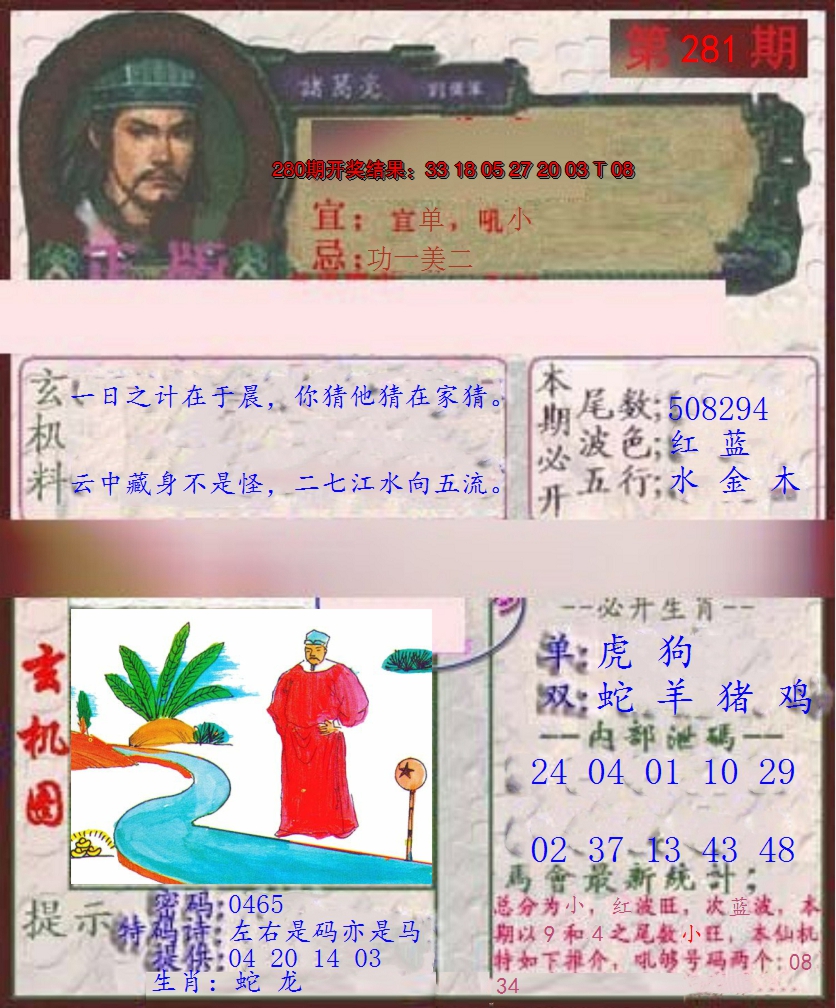 第 281 期
諸葛亮
280期开奖结果：33 18 05 27 20 03 T 08
宜：宜单，吼小
忌：功一美二
正版
玄机料
一日之计在于晨，你猜他猜在家猜。
云中藏身不是怪，二七江水向五流。
本期必开
尾数；508294
波色；红 蓝
五行；水 金 木
玄机图
--必开生肖--
单：虎 狗
双：蛇 羊 猪 鸡
—内部泄碼—
24 04 01 10 29
02 37 13 43 48
馬會最新统計；
总分为小，红波旺，次蓝波，本
期以9和4之尾数小旺，本仙机
特如下推介，吼够号码两个：08
34
提示
密码：0465
特码诗：左右是码亦是马
提供：04 20 14 03
生肖：蛇 龙